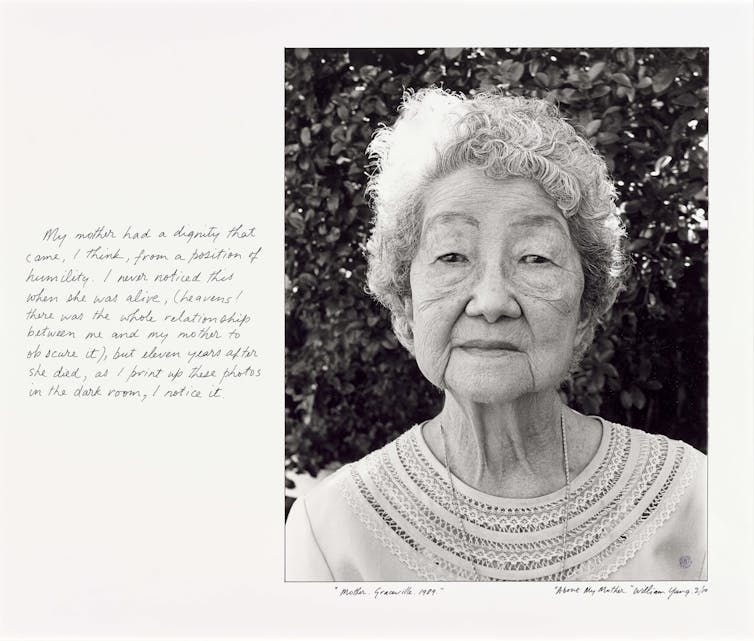 My mother had a dignity that
came, I think, from a position of
humility. I never noticed this
when she was alive, (heavens!
there was the whole relationship
between me and my mother to
obscure it), but eleven years after
she died, as I print up these photos
in the dark room, I notice it.
"Mother. Graceville. 1989."
"About My Mother" William Yang. 2/10